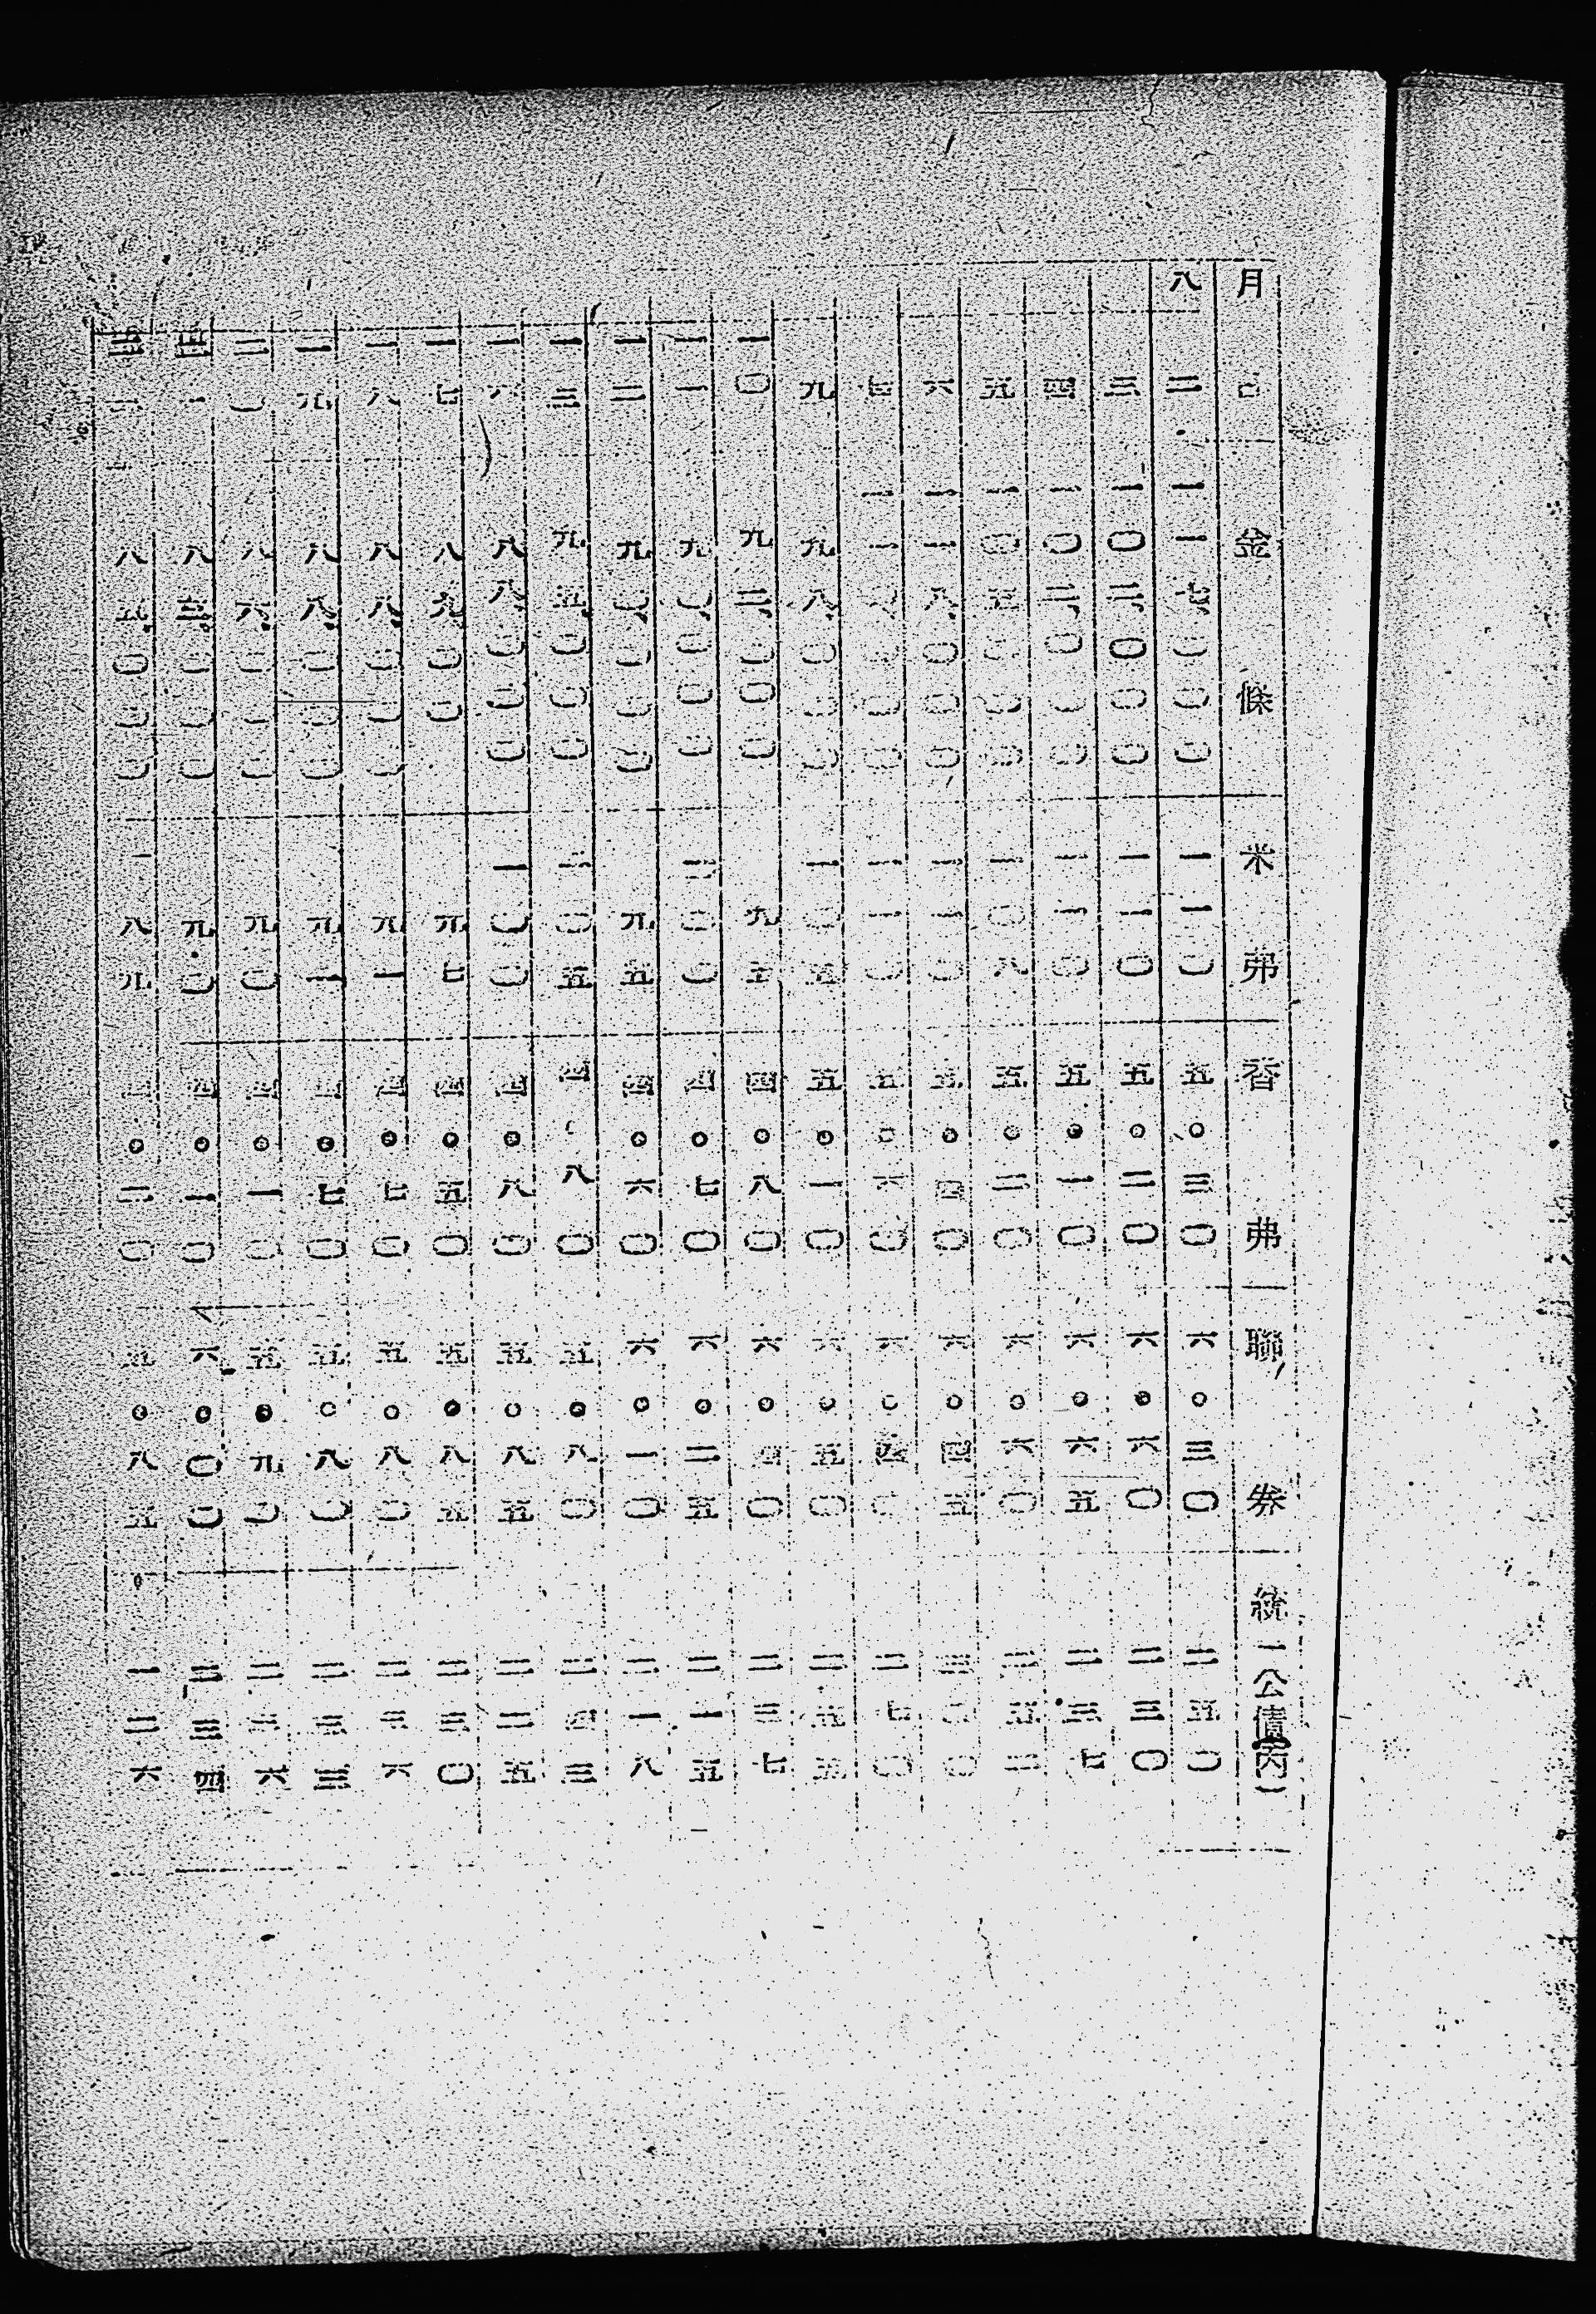 月 日 金條 米弗 香弗 聯券 統一公債(丙)
八 二 一一七,〇〇〇 一一〇 五。三〇 六。三〇 二五〇
三 一〇二,〇〇〇 一一〇 五。二〇 六。六〇 二三〇
四 一〇二,〇〇〇 一一〇 五。一〇 六。六五 二三七
五 一〇五〇〇〇 一〇八 五。二〇 六。六〇 二五二
六 一一八〇〇〇 一一〇 五。四〇 六。四五
七 一一〇〇〇 一一〇 五。六〇 六。四〇 二七〇
九 九八〇〇〇 一〇五 五。一〇 六。五〇 二五五
一〇 九三,〇〇〇 九五 四。八〇 六。四〇 二三七
一一 九〇,〇〇〇 一〇〇 四。七〇 六。二五 二一五
一二 九〇,〇〇〇 九五 四。六〇 六。一〇 二一八
一三 九五,〇〇〇 一〇五 四。八〇 五。八〇 二四三
一六 八八,〇〇〇 一〇〇 四。八〇 五。八五 二二五
一七 八九,〇〇 九七 四。五〇 五。八五 二三〇
一八 八八,〇〇〇 九一 四。七〇 五。八〇 二三六
一九 八八,〇〇〇 九一 四。七〇 五。八〇 二三三
二〇 八六,〇〇〇 九〇 四。一〇 五。九〇 二二六
二一 八三,〇〇〇 九〇 四。一〇 六。〇〇 二三四
二二 八五,〇〇〇 八九 四。二〇 五。八五 一二六